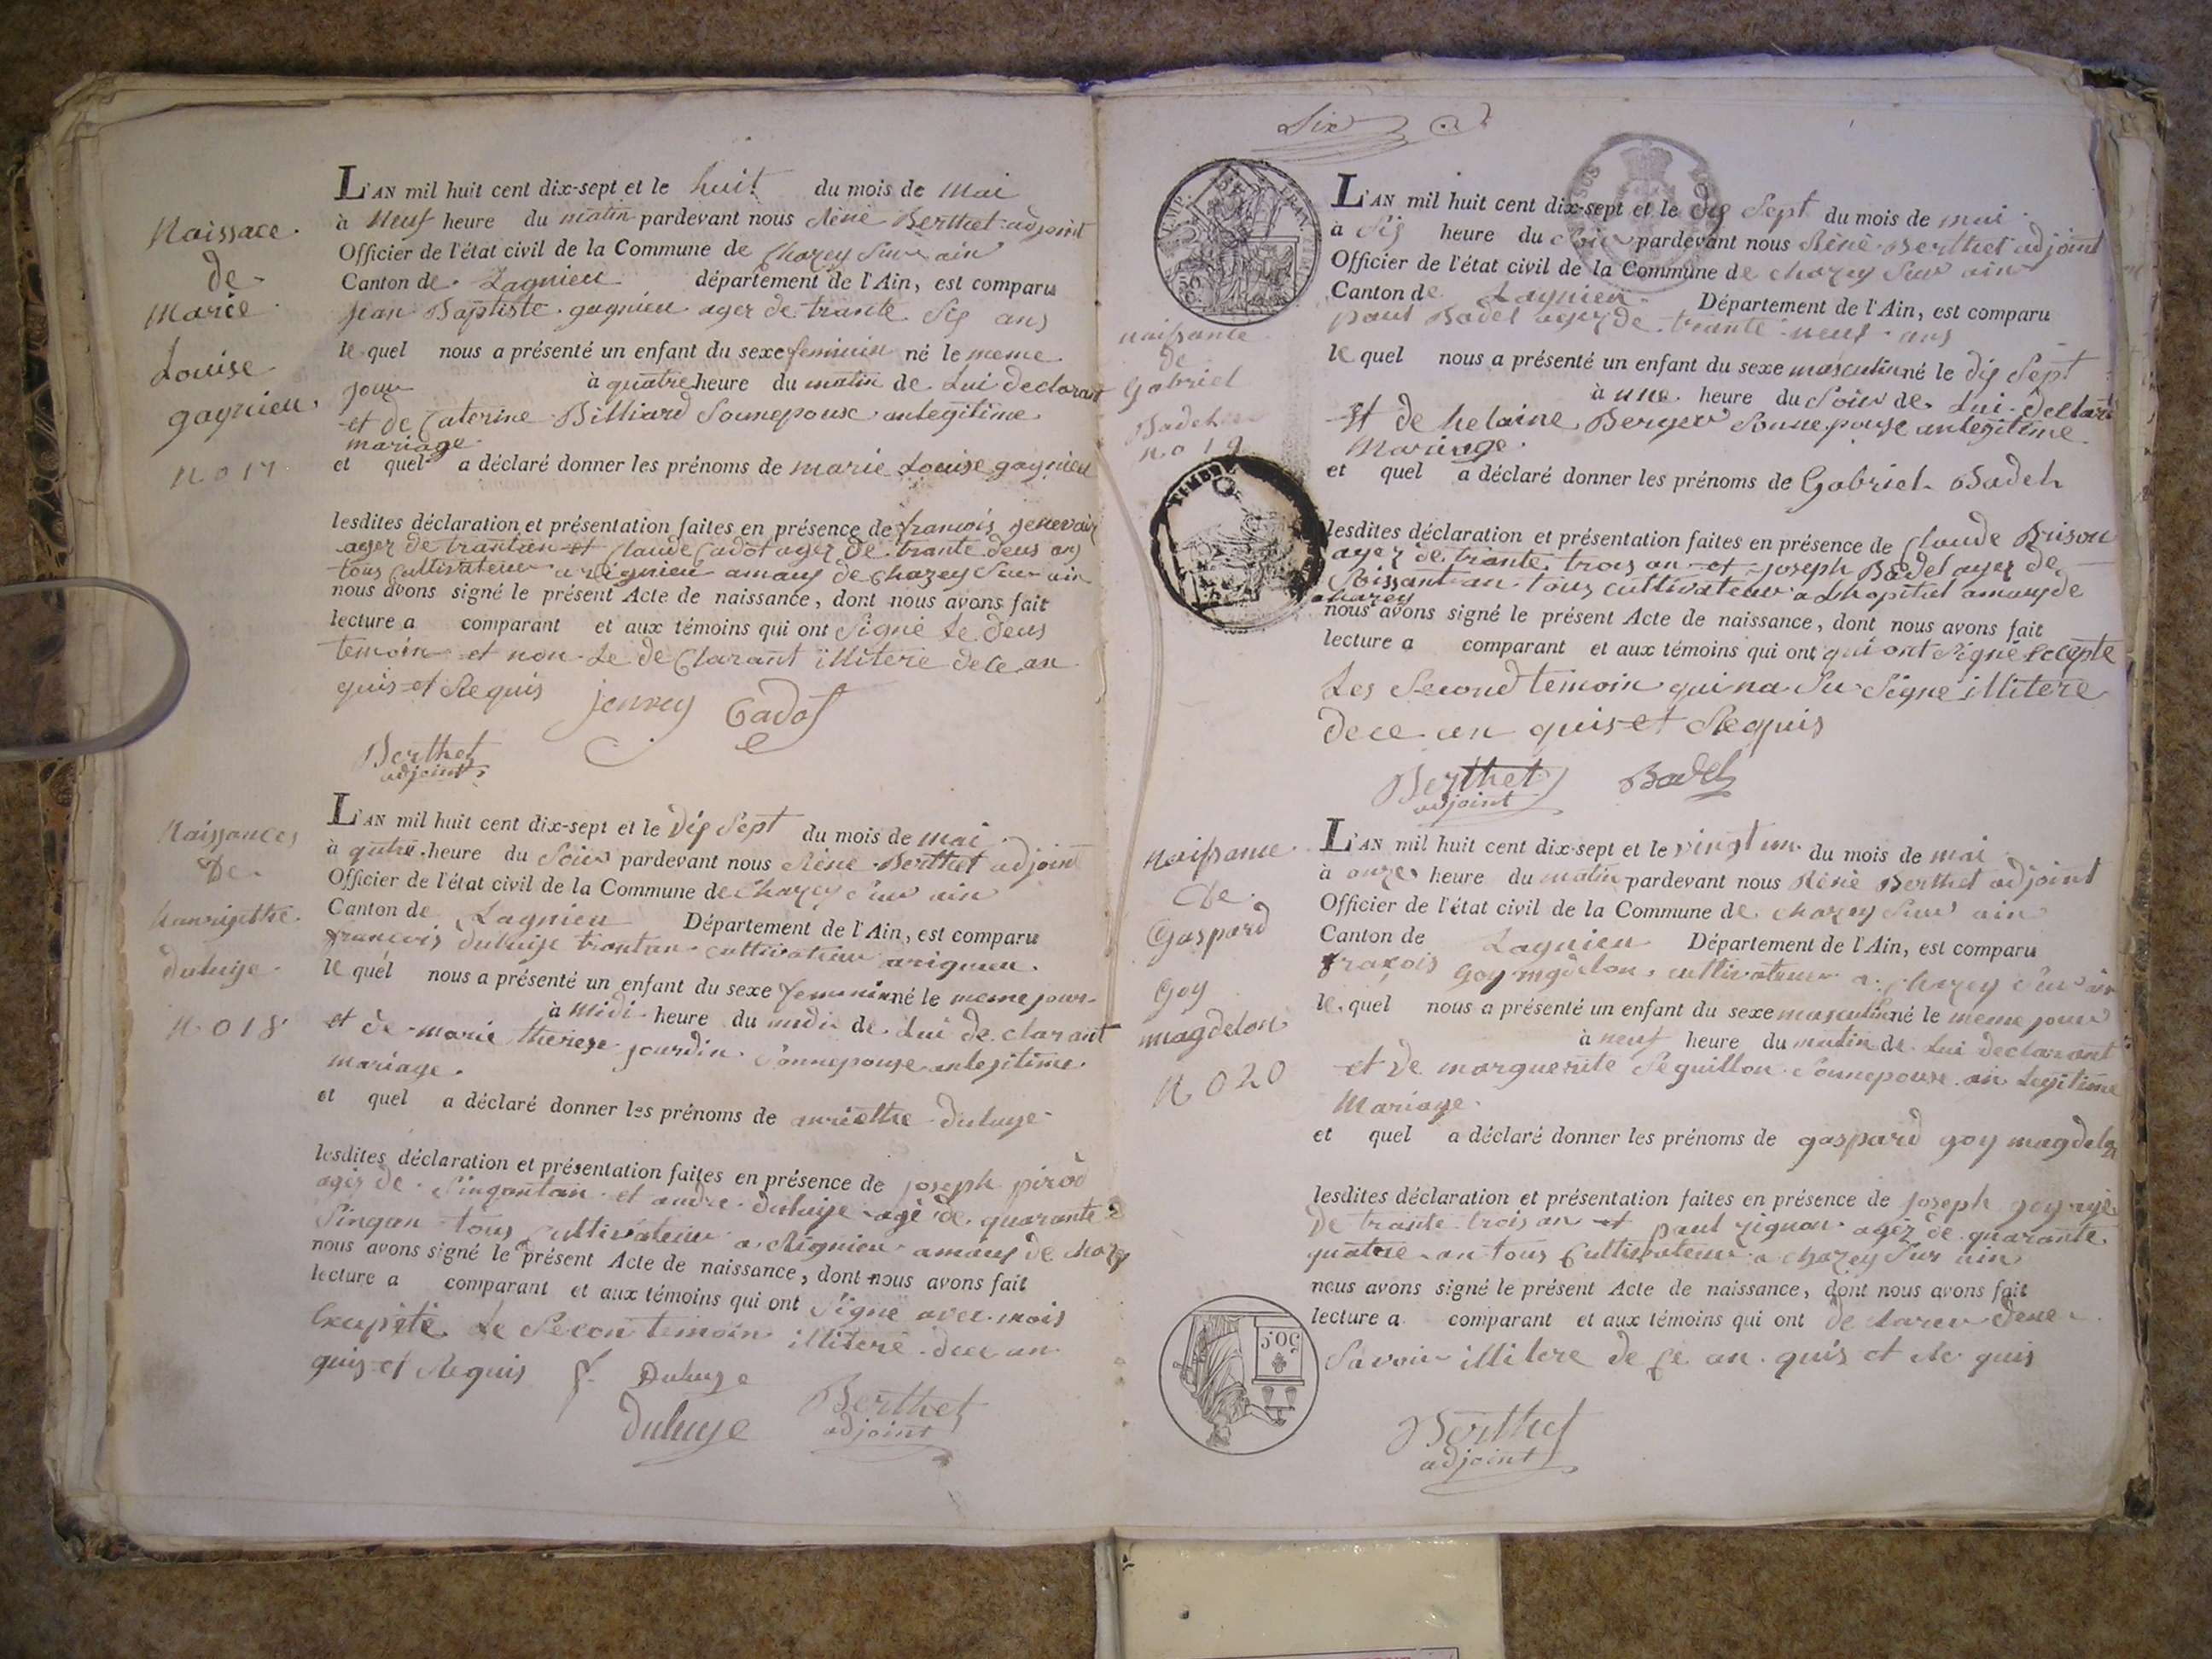 Naissace
de
Marie
Louise
gagnieu
No 17
L'AN mil huit cent dix-sept et le huit du mois de Mai
à Neuf heure du matin pardevant nous Réné Berthet adjoint
Officier de l'état civil de la Commune de Chazey Sur ain
Canton de Lagnieu département de l'Ain, est comparu
jean Baptiste gagnieu ager de trante Sis ans
le quel nous a présenté un enfant du sexe feminin né le meme
jour à quatre heure du matin de Lui declarant
et de Caterine Billiard Sonnepouse anlegitime
mariage
et quel a déclaré donner les prénoms de marie Louise gagnieu
lesdites déclaration et présentation faites en présence de francois
ager de trantan et Claude Cadot ager de trante deus ans
tous Cultivateur a Rignieu amaus de Chazey Sur ain
nous avons signé le présent Acte de naissance, dont nous avons fait
lecture a comparant et aux témoins qui ont Signé Le deus
temoin et non Le de Clarant illitere de ce an
quis et Requis
Cadot
Berthet
adjoint
Naissances
De
hanriethe
duluye
No 18
L'AN mil huit cent dix-sept et le Dis Sept du mois de mai
à qutre heure du Soir pardevant nous Réné Berthet adjoint
Officier de l'état civil de la Commune de Chazey Sur ain
Canton de Lagnieu Département de l'Ain, est comparu
francois duluye trantan cultivateur arignieu
le quel nous a présenté un enfant du sexe feminin né le meme jour
à Midi heure du midi de Lui de clarant
et de marie therese jourdin Sonnepouse anlegitime
mariage
et quel a déclaré donner les prénoms de anriethe duluye
lesdites déclaration et présentation faites en présence de joseph pirod
ager de Sinquantan et andre duluye agé de quarante
Sinqan tous Cultivateur a Rignieu amaus de chazey
nous avons signé le présent Acte de naissance, dont nous avons fait
lecture a comparant et aux témoins qui ont Signé avec mois
Le Secon temoin illitere dece an
quis et Requis f. Duluye
Duluye
Berthet
adjoint
Six
TIMBRE
naissance
de
Gabriel
Badel
no 19
L'AN mil huit cent dix-sept et le dis Sept du mois de mai
à Sis heure du Soir pardevant nous Réné Berthet adjoint
Officier de l'état civil de la Commune de chazey Sur ain
Canton de Lagnieu Département de l'Ain, est comparu
paul Badel ager de trante neuf ans
le quel nous a présenté un enfant du sexe masculin né le dis Sept
à une heure du Soir de Lui declara
et de helaine Berger Sonnepouse anlegitime
Mariage
et quel a déclaré donner les prénoms de Gabriel Badel
lesdites déclaration et présentation faites en présence de Claude Brison
ager de trante trois an et joseph Badel ager de
Soissant an tous cultivateur a Lhopital amaus de
Chazey
nous avons signé le présent Acte de naissance, dont nous avons fait
lecture a comparant et aux témoins qui ont qui ont Signé Ecepte
Les Second temoin qui na Su Signe illitere
dece an quis et Requis
Berthet
adjoint
Badel
naissance
de
Gaspard
Goy
magdelon
No 20
L'AN mil huit cent dix-sept et le vingt un du mois de mai
à onze heure du matin pardevant nous Réné Berthet adjoint
Officier de l'état civil de la Commune de chazey Sur ain
Canton de Lagnieu Département de l'Ain, est comparu
fraçois Goy mgdelon cultivateur a chazey Sur ain
le quel nous a présenté un enfant du sexe masculin né le meme jour
à neuf heure du matin de Lui declarant
et de marguerite Seguillon Sonnepouse an Legitime
Mariage
et quel a déclaré donner les prénoms de gaspard goy magdelon
lesdites déclaration et présentation faites en présence de joseph goy agé
De trante trois an et paul rignon agér de quarante
quatre an tous Cultivateur a chazey Sur ain
nous avons signé le présent Acte de naissance, dont nous avons fait
lecture a comparant et aux témoins qui ont de clarer dene
Savoir illitere de Ce an quis et Re quis
50.c
Berthet
adjoint